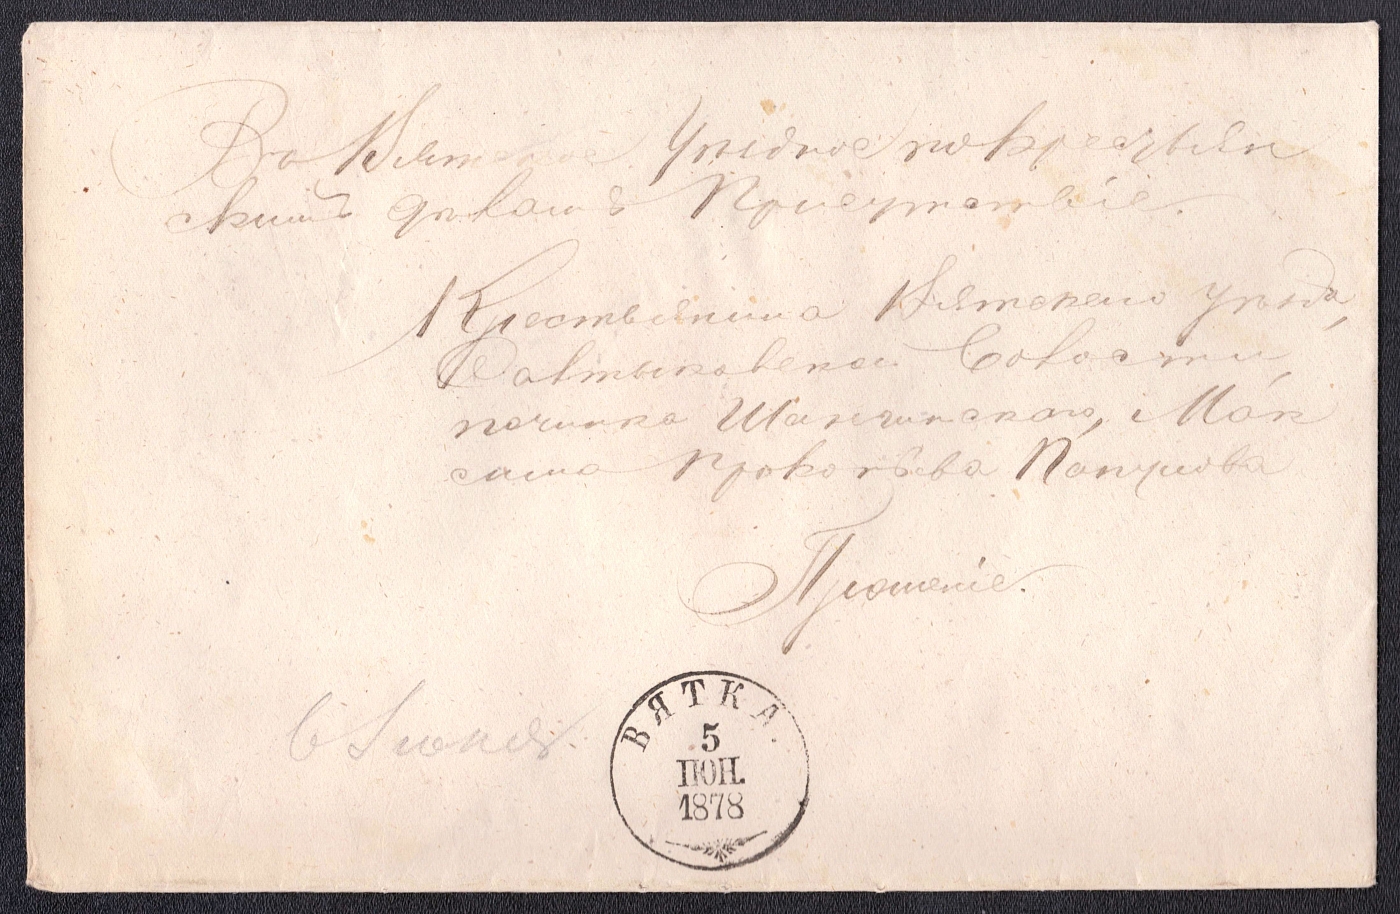 Въ Вятское Уѣздное по крестьян
скимъ дѣламъ Присутствіе.
Крестьянина Вятскаго уѣзда,
Салтыковской Волости,
починка Шанчинскаго, Мак
сима Прокопьева
Прошеніе.
6 Іюня.
ВЯТКА.
5
ІЮН.
1878